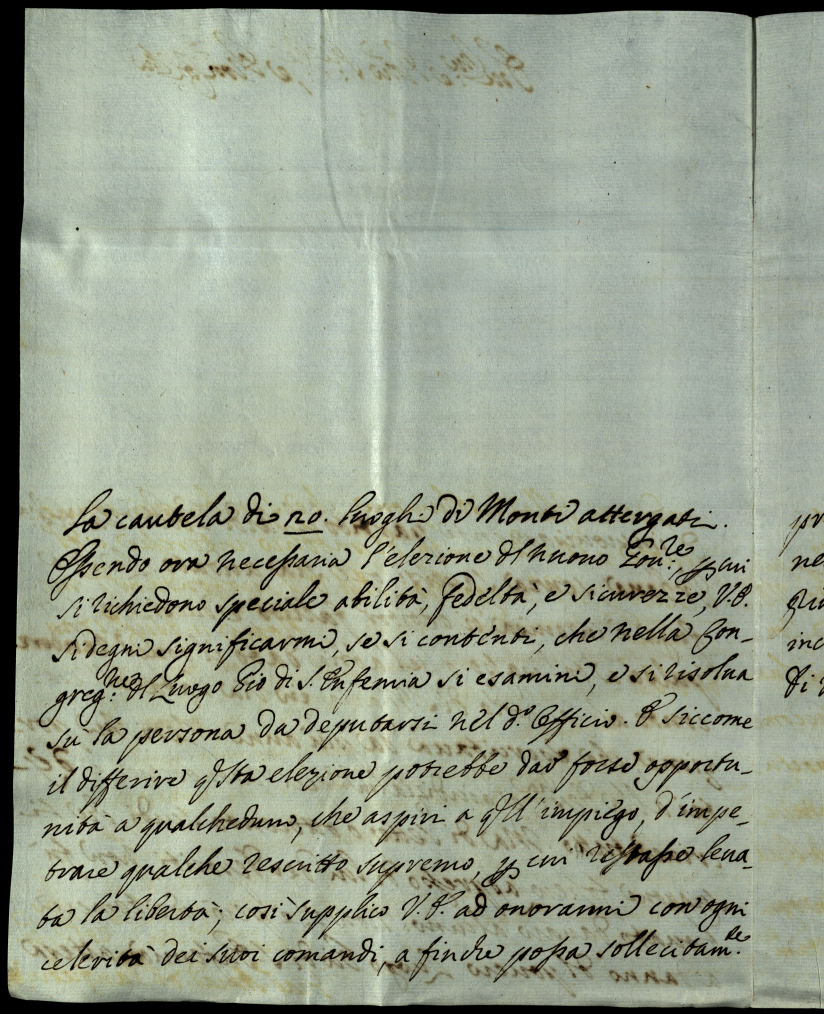 la cautela di 20. luoghi di Monti attergati.
Essendo ora necessaria l'elezione dl nuouo Eou:re, p cui
si richiedono speciale abilità, fedeltà, e sicurezze, V.E.
si degni significarmi, se si contenti, che nella Con-
greg:ne dl Luogo Pio di S. Eufemia si esamini, e si risolua
sù la persona da deputarsi nel d.o Officio. E siccome
il differire qsta elezione potrebbe dar forse opportu-
nità a qualcheduno, che aspiri a qll'impiego, d'impe-
trare qualche rescritto supremo, p cui restasse leua-
ta la libertà; così supplico V.E. ad onorarmi con ogni
celerità dei suoi comandi, a finche possa sollecitam:te